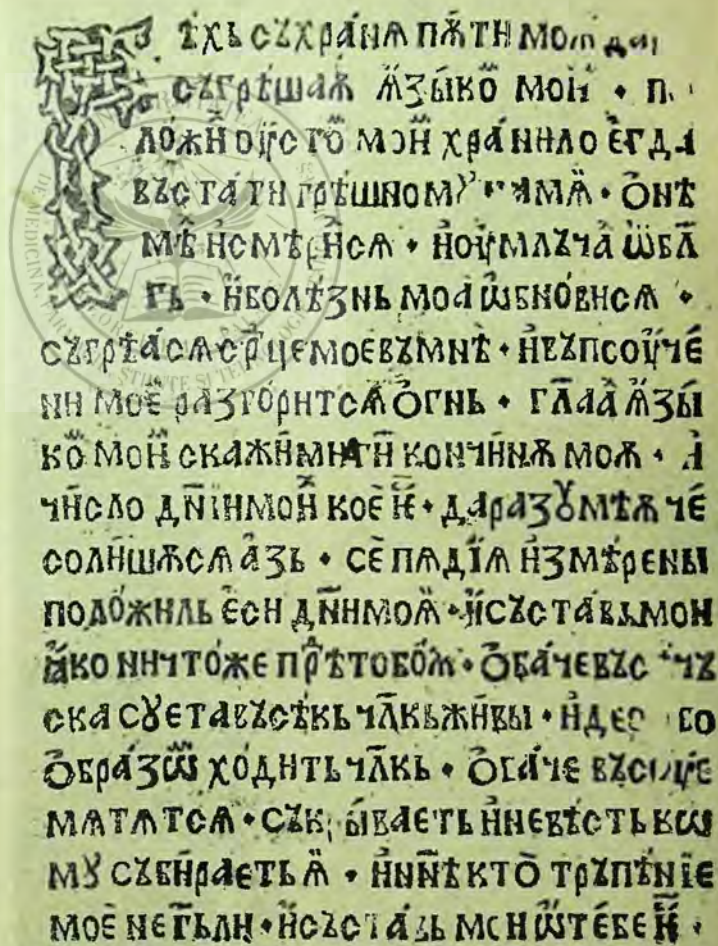 рѣхь съхранѧ пѫти моѧ да
съгрѣшаѫ ѫзыко҄ мои •
ложѝ оу҆сто҄ мои҆ хранило е҆гда
въстати грѣшному мѧ̀ • о҆нѣ
мѣ̀ и҆смѣрѝсѧ • и҆оу҆млъча ѿбл҃
гь • и҆болѣзнь моа̀ ѡ҆бнови́сѧ •
съгрѣ́а̀сѧ ср҃цемоевъмнѣ̀ • и҆въпсоуче́
ни моѐ разго́ритсѧ ѻ҆гнь • гл҃аа̀ ѫ҆зы́
ко҄ мои҆ скажи́ми ги҃ кончи́нѫ моѫ • а҆
чи́сло дн҃їимои҆ коѐ и҆̀ • даразꙋмѣ́ѫ че́
соли́шѫсѧ а҆зь • сѐ пѧдїѧ и҆змѣ́рены
положи́ль е҆си дн҃имоѫ̀ • и҆съста́вьмои
ꙗ҆ко ничто́же прⷣѣтобо́ѫ • ѻ҆ба́чевъс чъ
ска сꙋета̀ въсѣ́кь чл҃кьжи́вы • и҆
ѻ҆бра́зѡⷨ хо́дить чл҃кь • ѻ҆ба́че въсꙋ́е
мѧтѧтсѧ • съкрываеть и҆невѣ́сть кѡ
мꙋ̀ събѝраеть ѧ҆̀ • и҆нн҃ѣ̀ кто̀ тръпѣ́нїе
моѐ нег҃ьли • и҆съста́вь мои ѿ те́бе и҆̀ •